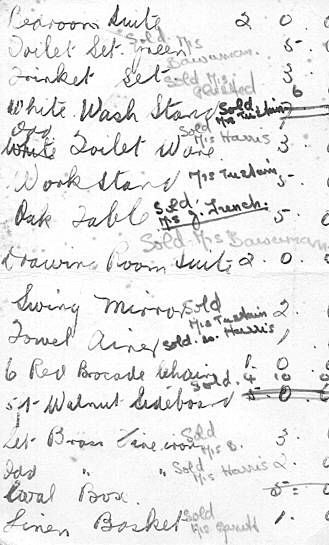 Bedroom Suite 2 0 0
Toilet Set Green Sold Mrs Bawerman. 5 0
Trinket Set Sold Mrs 3
White Wash Stand Sold Mrs Tustain 6
Odd White Toilet Ware Sold Mrs Harris 3 0
Work Stand Mrs Tustain 5
Oak Table Sold Mrs J. Lunch. 5 0
Sold Mrs Bawerman
Drawing Room Suite 2 0 0
Swing Mirror Sold Mrs Tustain 2
Towel Airer Sold. Harris 1
6 Red Brocade Chairs 1 0 0
5ft Walnut Sideboard Sold. 4 10 0
5 0 0
Set Brass Fire irons Sold Mrs B. 3
Odd " " Sold Mrs Harris 2
Coal Box. 5
Linen Basket Sold Mrs 1 0